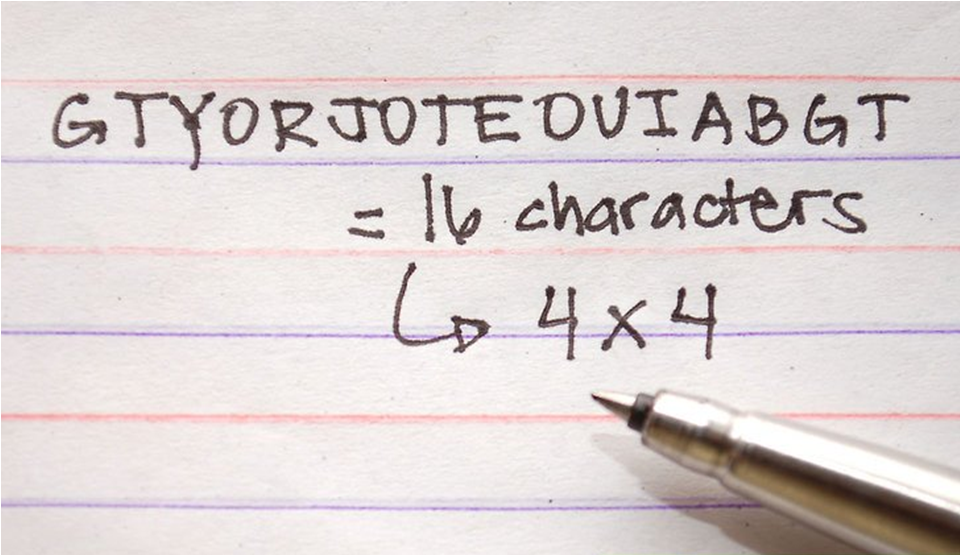 GTYORJOTEOUIABGT
= 16 characters
↳ 4 x 4